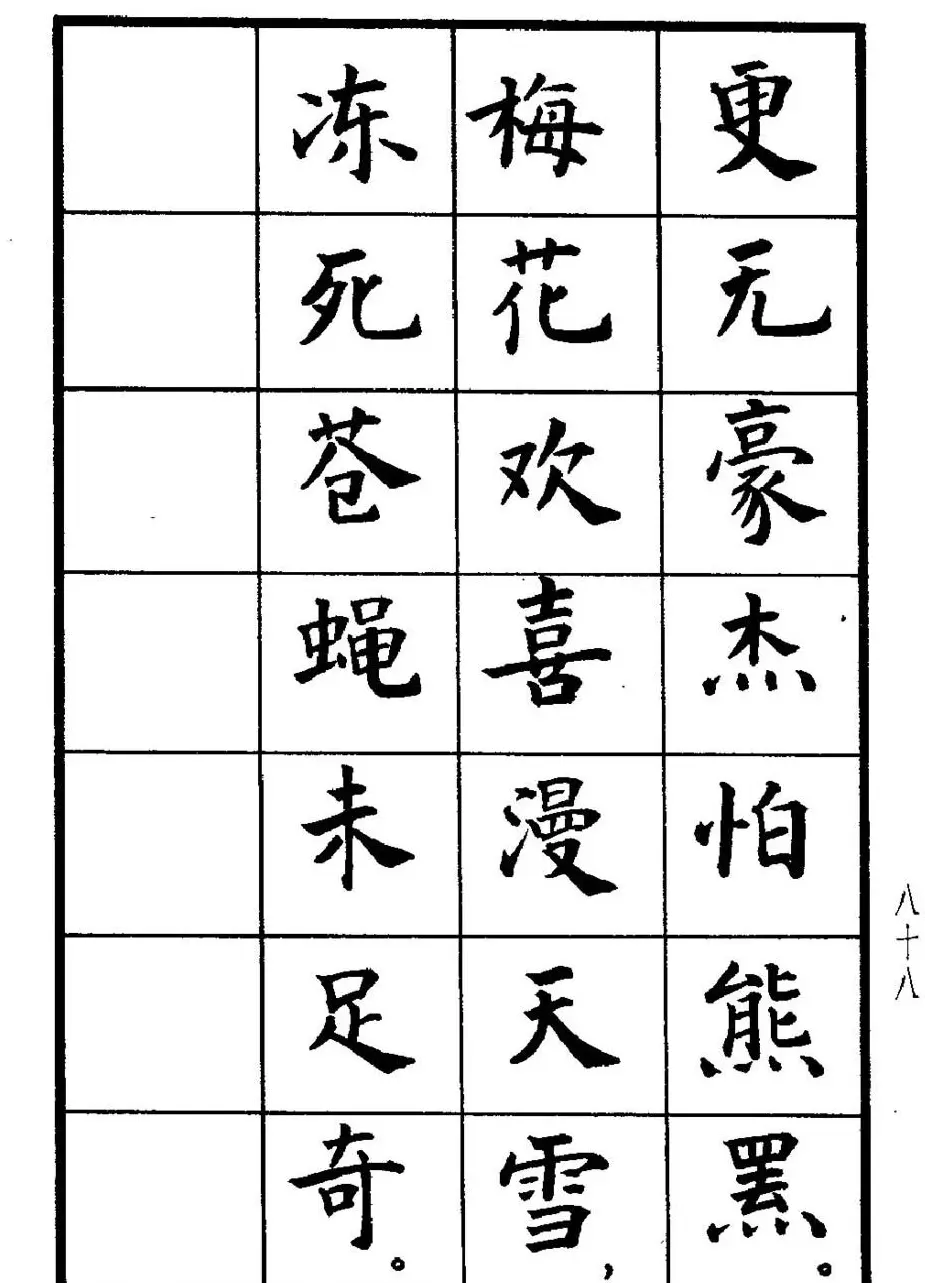 更无豪杰怕熊罴。
梅花欢喜漫天雪,
冻死苍蝇未足奇。
八十八